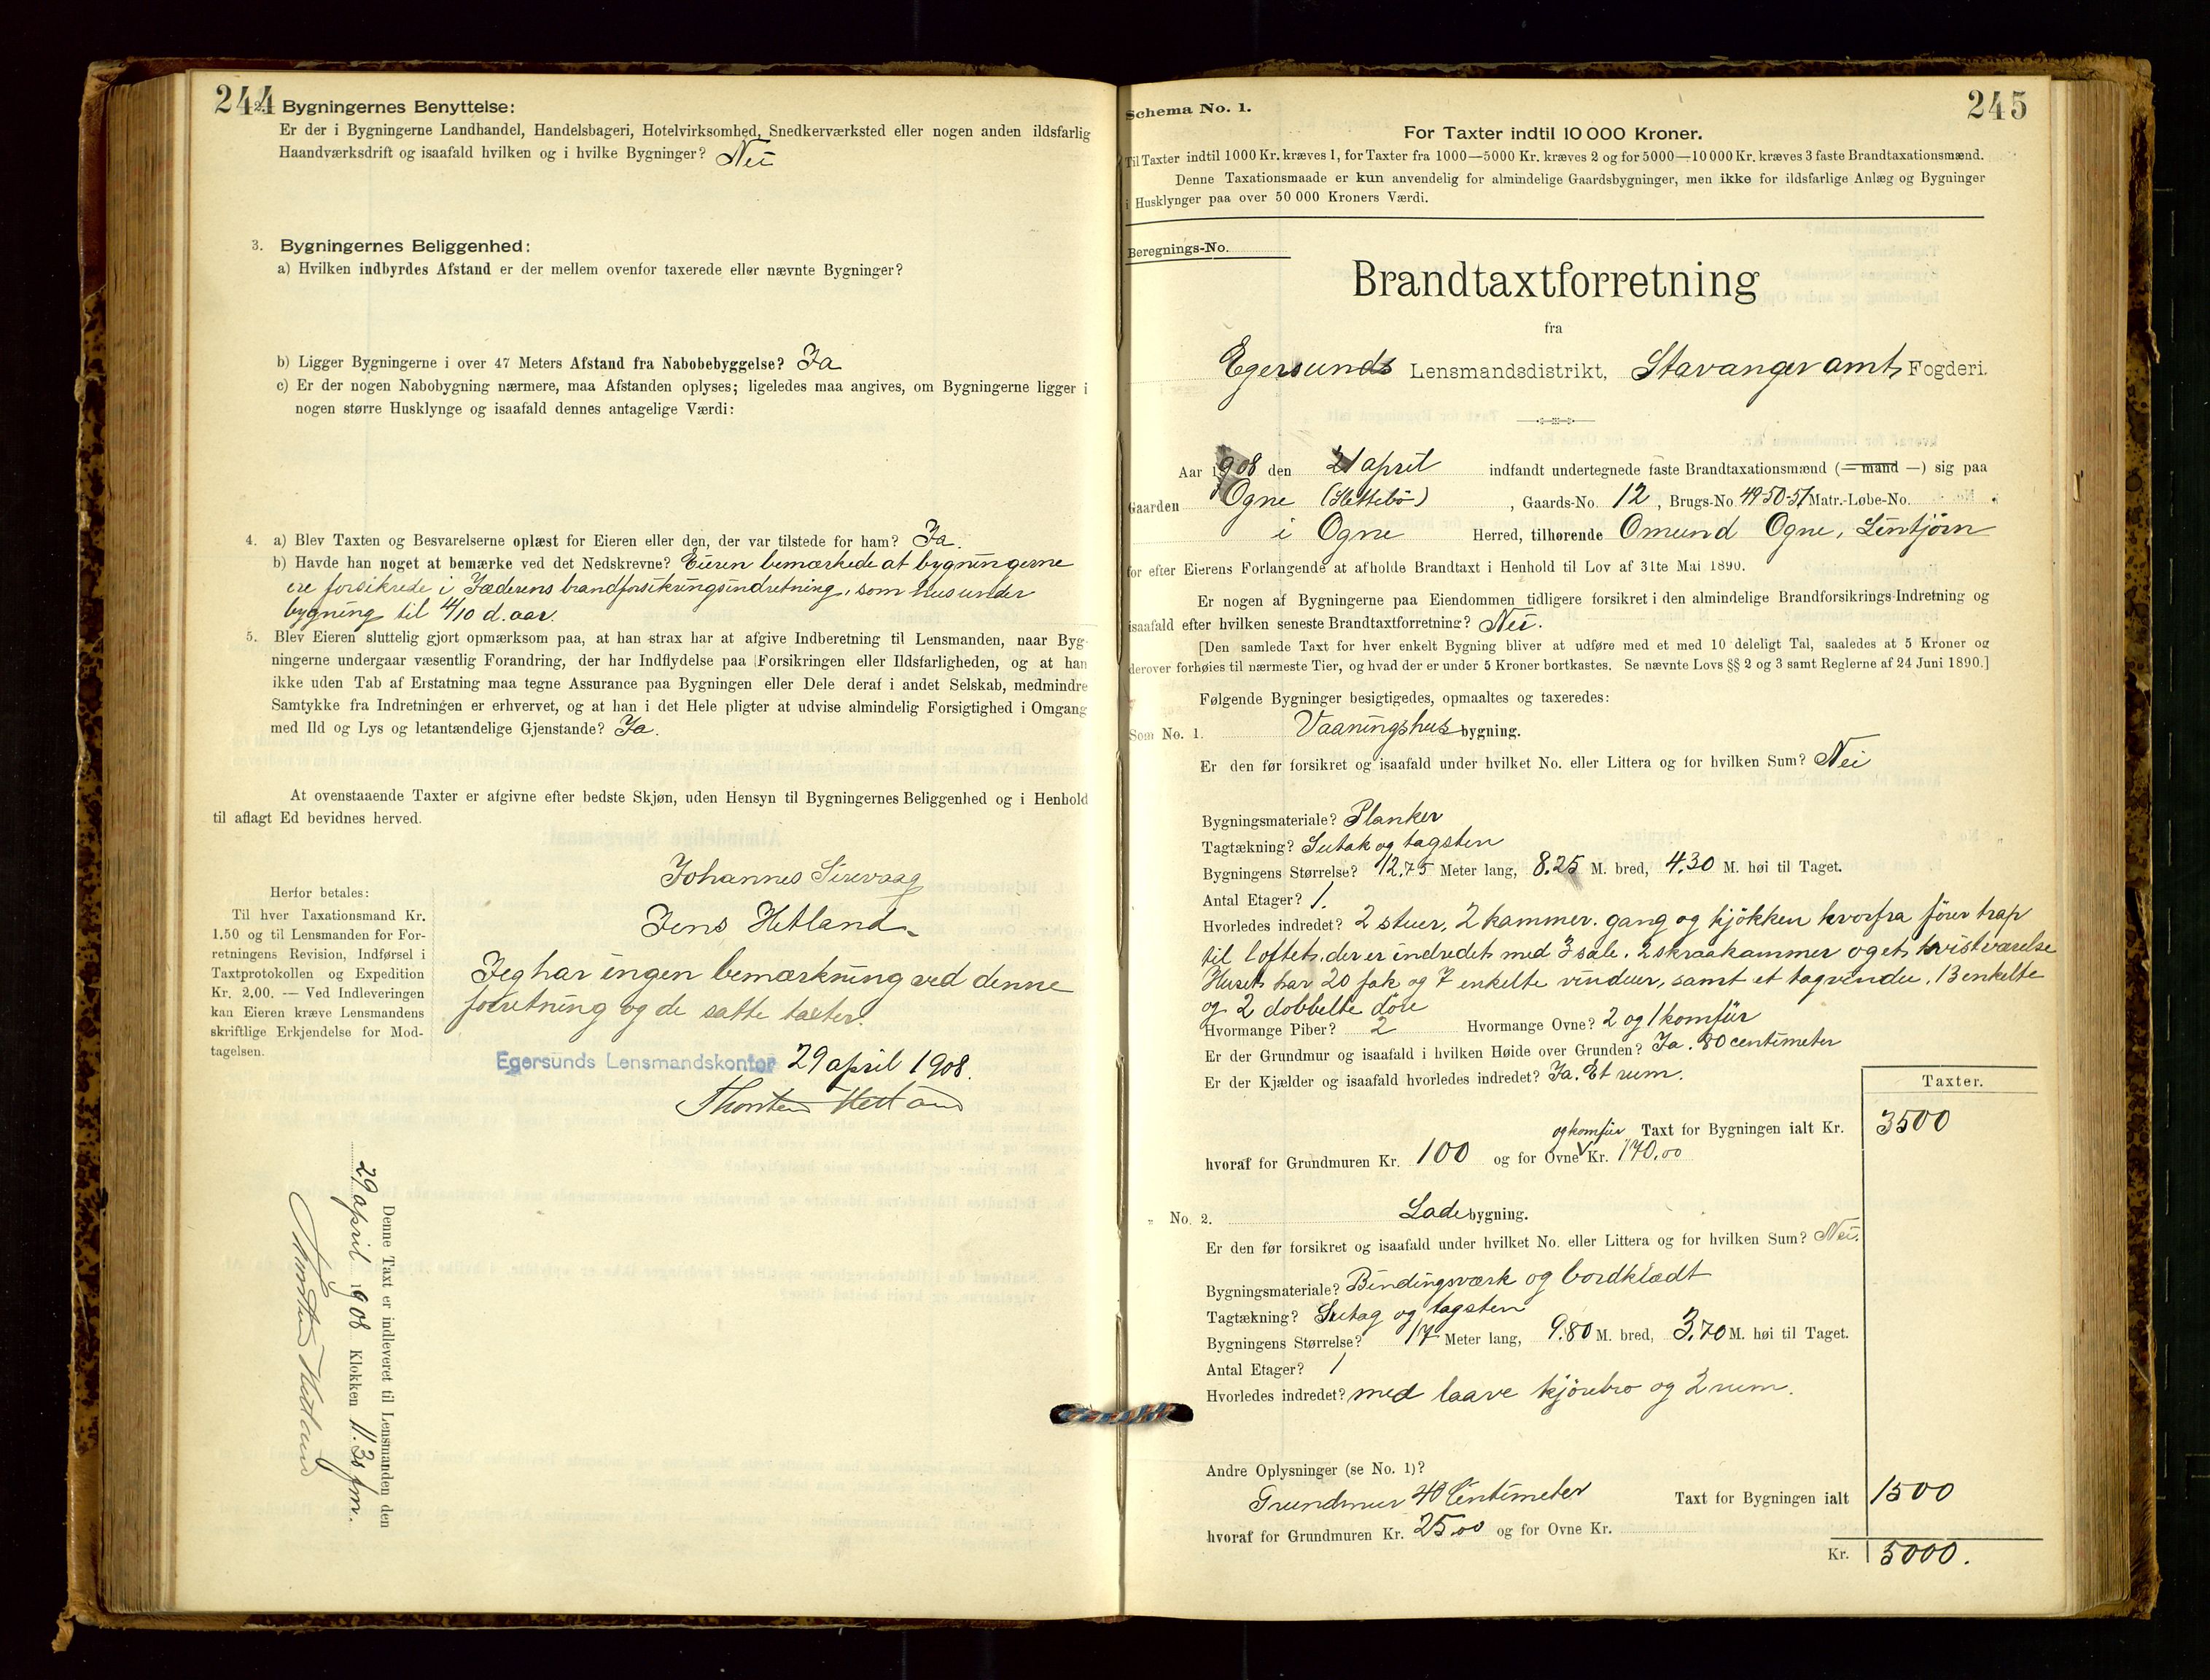 244
2. Bygningernes Benyttelse:
Er der i Bygningerne Landhandel, Handelsbageri, Hotelvirksomhed, Snedkerværksted eller nogen anden ildsfarlig
Haandværksdrift og isaafald hvilken og i hvilke Bygninger? Nei
3. Bygningernes Beliggenhed:
a) Hvilken indbyrdes Afstand er der mellem ovenfor taxerede eller nævnte Bygninger?
b) Ligger Bygningerne i over 47 Meters Afstand fra Nabobebyggelse? Ja
c) Er der nogen Nabobygning nærmere, maa Afstanden oplyses; ligeledes maa angives, om Bygningerne ligger i
nogen større Husklynge og isaafald dennes antagelige Værdi:
4. a) Blev Taxten og Besvarelserne oplæst for Eieren eller den, der var tilstede for ham? Ja.
b) Havde han noget at bemærke ved det Nedskrevne? Eieren bemærkede at bygningerne
ere forsikrede i Jæderens brandforsikringsindretning, som hus under
bygning til 4/10 d. aar.
5. Blev Eieren sluttelig gjort opmærksom paa, at han strax har at afgive Indberetning til Lensmanden, naar Byg-
ningerne undergaar væsentlig Forandring, der har Indflydelse paa Forsikringen eller Ildsfarligheden, og at han
ikke uden Tab af Erstatning maa tegne Assurance paa Bygningen eller Dele deraf i andet Selskab, medmindre
Samtykke fra Indretningen er erhvervet, og at han i det Hele pligter at udvise almindelig Forsigtighed i Omgang
med Ild og Lys og letantændelige Gjenstande? Ja.
At ovenstaaende Taxter er afgivne efter bedste Skjøn, uden Hensyn til Bygningernes Beliggenhed og i Henhold
til aflagt Ed bevidnes herved.
Johannes Sirevaag
Jens Hetland
Herfor betales:
Til hver Taxationsmand Kr.
1.50 og til Lensmanden for For-
retningens Revision, Indførsel i
Taxtprotokollen og Expedition
Kr. 2.00. — Ved Indleveringen
kan Eieren kræve Lensmandens
skriftlige Erkjendelse for Mod-
tagelsen.
Jeg har ingen bemærkning ved denne
forretning og de satte taxter.
Egersunds Lensmandskontor 29 april 1908.
Thorsten Hetland
Denne Taxt er indleveret til Lensmanden den
29 april 1908 Klokken 11.30 fm.
Thorsten Hetland
245
Schema No. 1.
For Taxter indtil 10 000 Kroner.
Til Taxter indtil 1000 Kr. kræves 1, for Taxter fra 1000—5000 Kr. kræves 2 og for 5000—10 000 Kr. kræves 3 faste Brandtaxationsmænd.
Denne Taxationsmaade er kun anvendelig for almindelige Gaardsbygninger, men ikke for ildsfarlige Anlæg og Bygninger
i Husklynger paa over 50 000 Kroners Værdi.
Beregnings-No.
Brandtaxtforretning
fra
Egersunds Lensmandsdistrikt, Stavanger amts Fogderi.
Aar 1908 den 21 april indfandt undertegnede faste Brandtaxationsmænd (— mand —) sig paa
Gaarden Ogne (Slettebö), Gaards-No. 12, Brugs-No. 49-50-51 Matr.-Løbe-No.
i Ogne Herred, tilhørende Omund Ogne, Lintjörn
for efter Eierens Forlangende at afholde Brandtaxt i Henhold til Lov af 31te Mai 1890.
Er nogen af Bygningerne paa Eiendommen tidligere forsikret i den almindelige Brandforsikrings-Indretning og
isaafald efter hvilken seneste Brandtaxtforretning? Nei.
[Den samlede Taxt for hver enkelt Bygning bliver at udføre med et med 10 deleligt Tal, saaledes at 5 Kroner og
derover forhøies til nærmeste Tier, og hvad der er under 5 Kroner bortkastes. Se nævnte Lovs §§ 2 og 3 samt Reglerne af 24 Juni 1890.]
Følgende Bygninger besigtigedes, opmaaltes og taxeredes:
Som No. 1. Vaaningshus bygning.
Er den før forsikret og isaafald under hvilket No. eller Littera og for hvilken Sum? Nei
Bygningsmateriale? Planker
Tagtækning? Sutak og tagsten
Bygningens Størrelse? 12,75 Meter lang, 8,25 M. bred, 4,30 M. høi til Taget.
Antal Etager? 1.
Hvorledes indredet? 2 stuer, 2 kammer, gang og kjökken hvorfra förer trap
til loftet, der er indredet med 3 sale, 2 skraakammer og et kvistværelse
Huset har 20 fak og 7 enkelte vinduer, samt et tagvindu, 13 enkelte
og 2 dobbelte döre
Hvormange Piber? 2 Hvormange Ovne? 2 og 1 komfür
Er der Grundmur og isaafald i hvilken Høide over Grunden? Ja. 80 centimeter
Er der Kjælder og isaafald hvorledes indredet? Ja. Et rum.
Taxter.
og komfür Taxt for Bygningen ialt Kr. 3500
hvoraf for Grundmuren Kr. 100 og for Ovne Kr. 170,00
" No. 2. Lade bygning.
Er den før forsikret og isaafald under hvilket No. eller Littera og for hvilken Sum? Nei.
Bygningsmateriale? Bindingsværk og bordklædt
Tagtækning? Sutag og tagsten
Bygningens Størrelse? 17 Meter lang, 9.80 M. bred, 3,70 M. høi til Taget.
Antal Etager? 1
Hvorledes indredet? med laave kjörebro og 2 rum.
Andre Oplysninger (se No. 1)?
Grundmur 40 Centimeter Taxt for Bygningen ialt 1500
hvoraf for Grundmuren Kr. 25,00 og for Ovne Kr.
Kr. 5000.